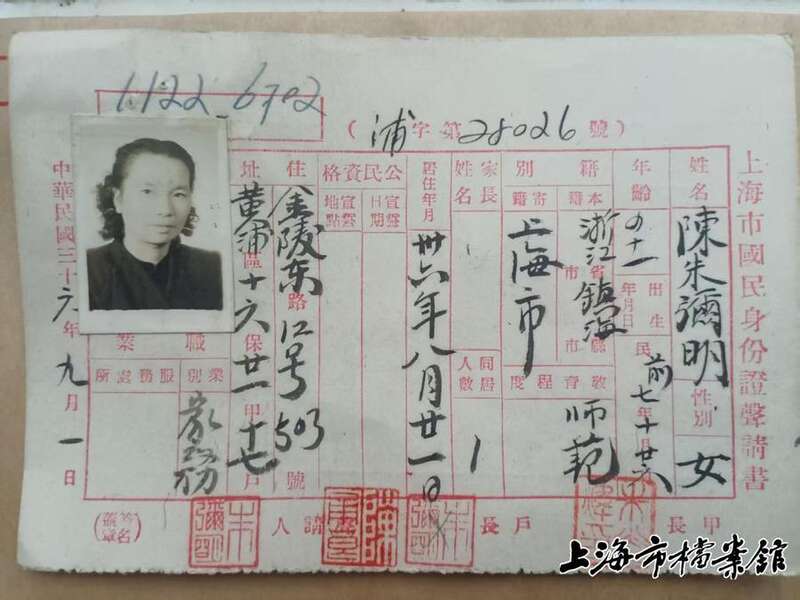 上海市國民身份證聲請書
1122 6702
(浦字第28026號)
姓名 陳朱彌明 性別 女
年齡 四十一 出生年月日 民前七年十月廿六
籍別 本籍 浙江省鎮海縣市
寄籍 上海市
教育程度 师范
家長姓名
同居人數 1
居住年月 卅六年八月廿一日
公民資格 宣誓日期
宣誓地點
住址 金陵东路江号503號
黄浦區十六保廿一甲十七户
職業 業別 家務
服務處所
中華民國三十六年九月一日
甲長
戶長
聲請人
(簽名蓋章)
朱彌明
上海市檔案館